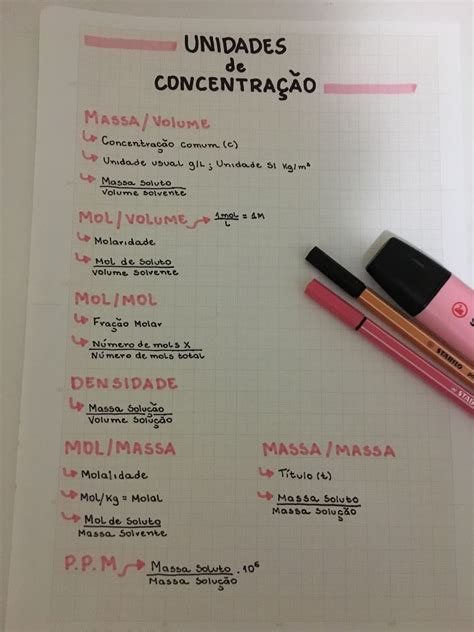 UNIDADES
de
CONCENTRAÇÃO
MASSA/VOLUME
Concentração comum (c)
Unidade usual g/L ; Unidade SI Kg/m³
Massa Soluto
Volume solvente
MOL/VOLUME
1mol
L
= 1M
Molaridade
Mol de Soluto
Volume Solvente
MOL/MOL
Fração Molar
Número de mols X
Número de mols total
DENSIDADE
Massa Solução
Volume Solução
MOL/MASSA
Molalidade
Mol/Kg = Molal
Mol de Soluto
Massa Solvente
MASSA/MASSA
Título (t)
Massa Soluto
Massa Solução
P.P.M
Massa Soluto . 10⁶
Massa Solução
STABILO